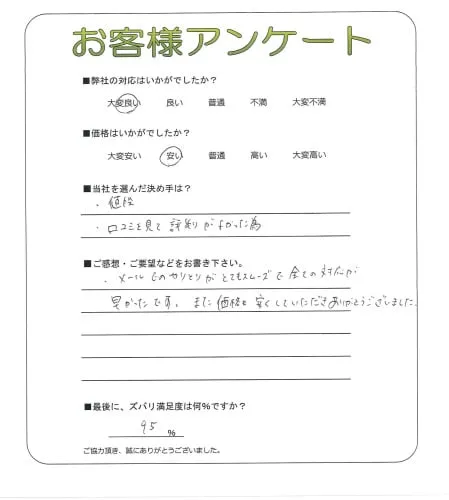 お客様アンケート
■弊社の対応はいかがでしたか?
大変良い 良い 普通 不満 大変不満
■価格はいかがでしたか?
大変安い 安い 普通 高い 大変高い
■当社を選んだ決め手は?
・値段
・口コミを見て評判が良かった為
■ご感想・ご要望などをお書き下さい。
・メールでのやりとりがとてもスムーズで全ての対応が
早かったです。また価格も安くしていただきありがとうございました。
■最後に、ズバリ満足度は何%ですか?
95 %
ご協力頂き、誠にありがとうございました。